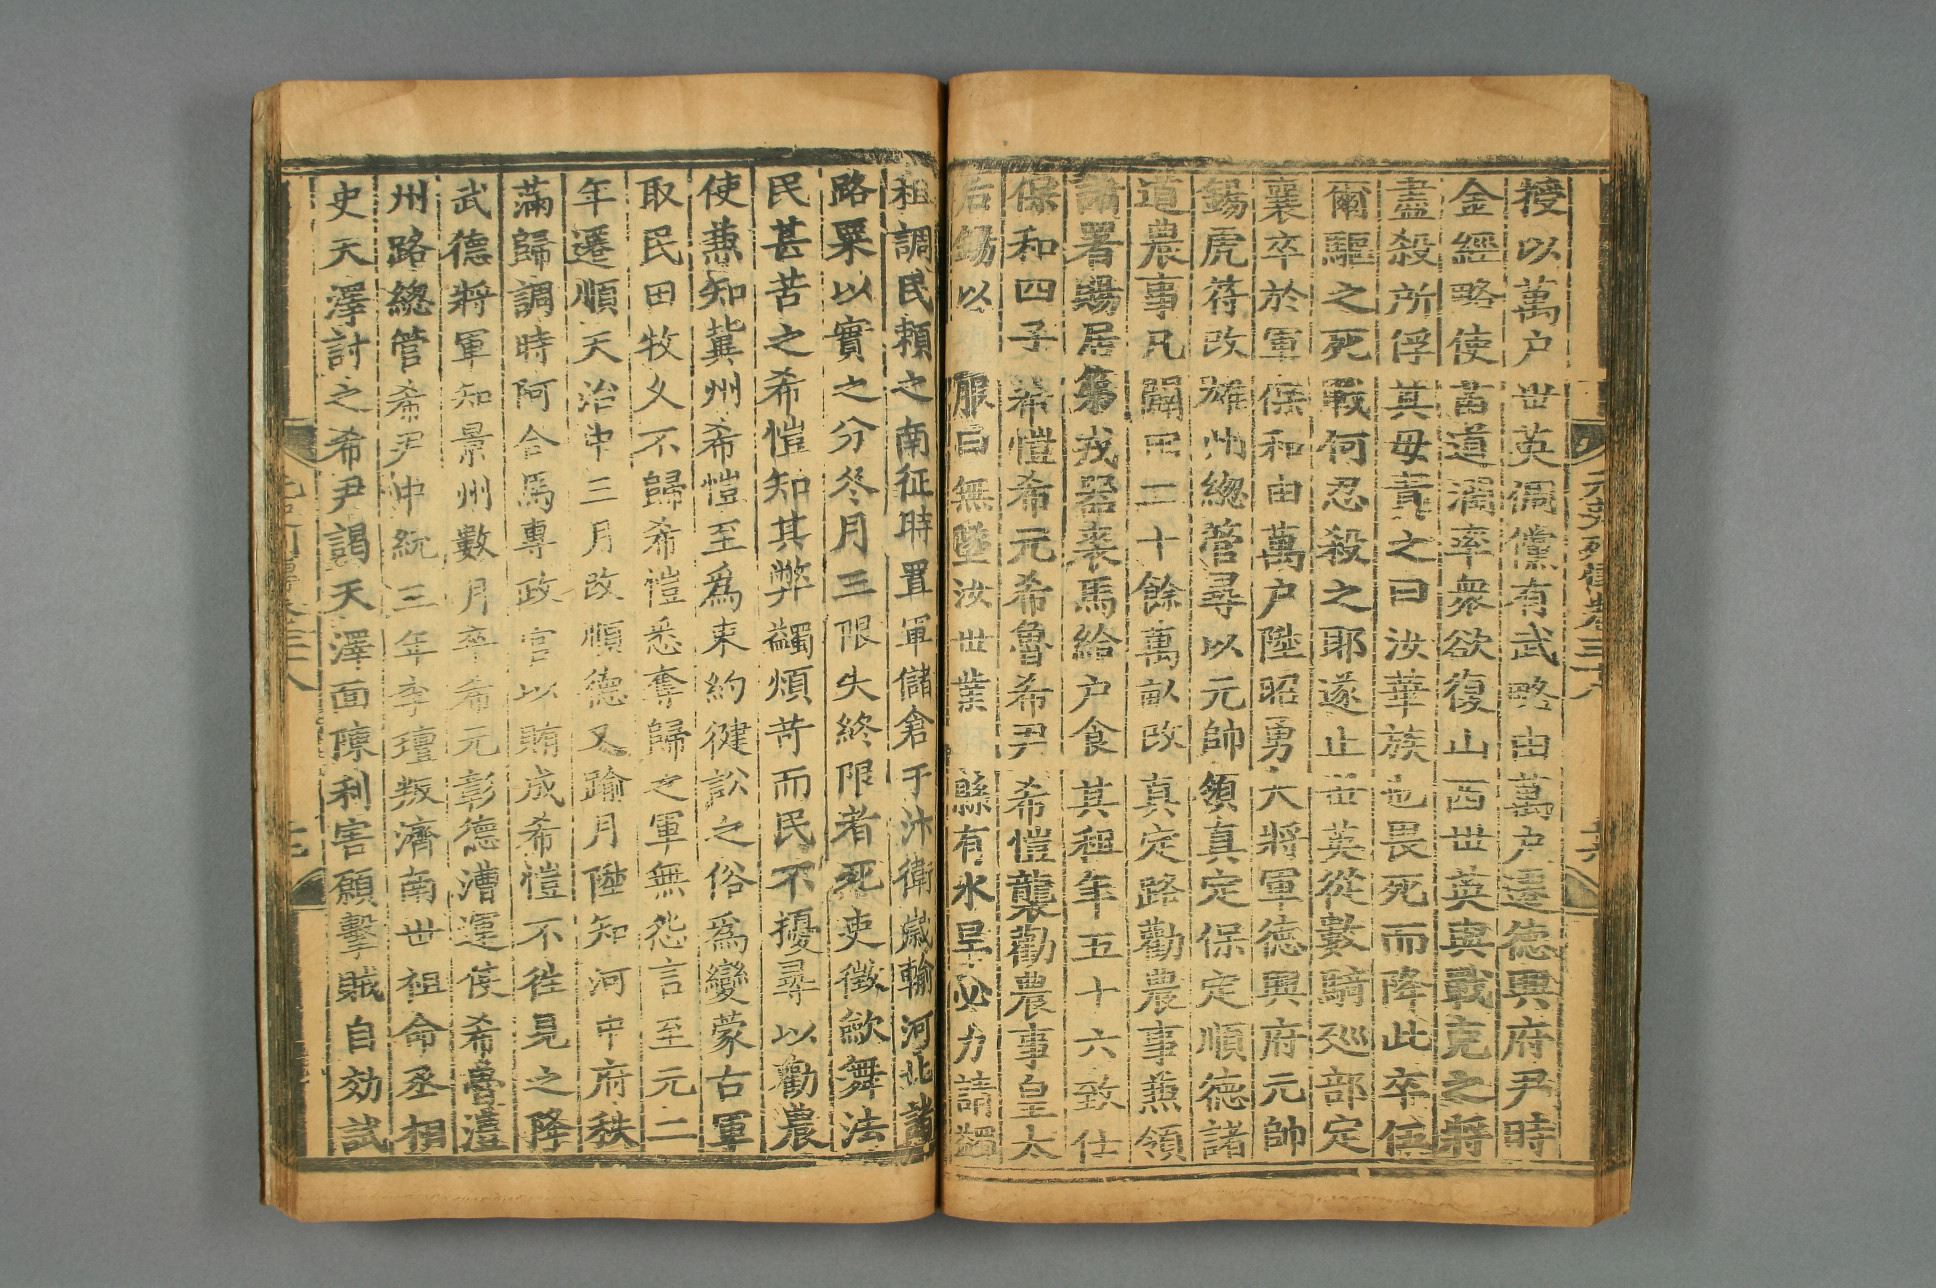 授以萬户世英倜儻有武略由萬户遷德興府尹時
金經略使苗道潤率衆欲復山西世英與戰克之將
盡殺所俘其母責之曰汝華族也畏死而降此卒伍
爾驅之死戰何忍殺之耶遂止世英從數騎廵部定
襄卒於軍保和由萬户陞昭勇大將軍德興府元帥
錫虎符改雄州總管尋以元帥領真定保定順德諸
道農事凡闢田二十餘萬畝改真定路勸農事兼領
諸署賜居第戎器裘馬給户食其租年五十六致仕
保和四子希愷希元希魯希尹希愷襲勸農事皇太
后錫以 服曰無墜汝世業 縣有水呈必力請蠲
租調民賴之南征時置軍儲倉于汴衛歲輸河北諸
路粟以實之分冬月三限失終限者死吏徵斂舞法
民甚苦之希愷知其弊蠲煩苛而民不擾尋以勸農
使兼知冀州希愷至爲束約健訟之俗爲變蒙古軍
取民田牧乂不歸希愷悉奪歸之軍無怨言至元二
年遷順天治中三月改順德又踰月陞知河中府秩
滿歸調時阿合馬專政官以賄成希愷不徃見之降
武德將軍知景州數月卒希元彰德漕運使希魯澧
州路總管希尹中統三年李璮叛濟南世祖命丞相
史天澤討之希尹謁天澤面陳利害願擊賊自効試